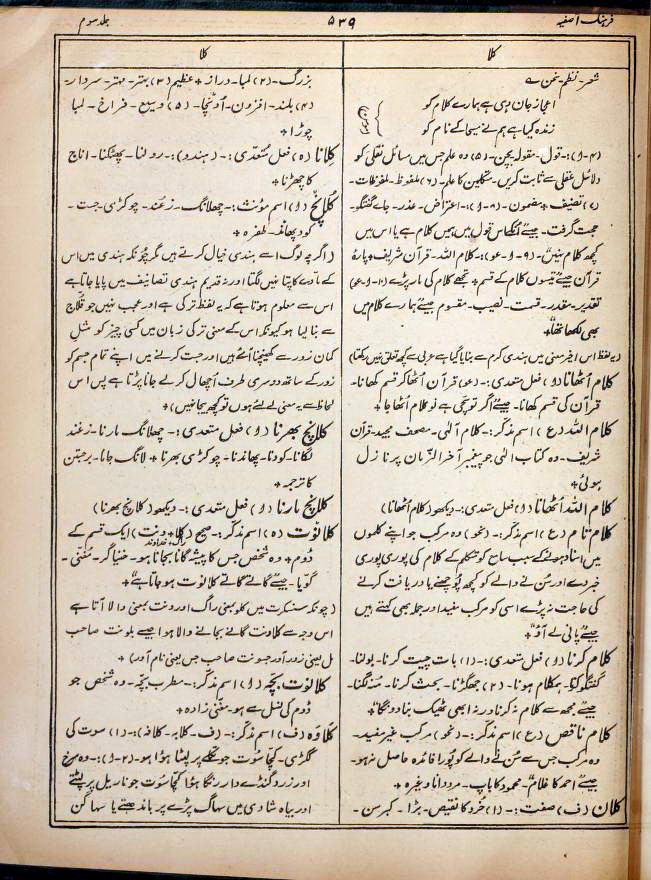 فرہنگ آصفیہ
۵۳۹
جلد سوم
کلا
شعر۔ نظم۔ سخن ؎
اعجاز جاں دہی ہے ہمارے کلام کو
زندہ کیا ہے ہم نے مسیحا کے نام کو
(۴۔ و):۔ قول۔ مقولہ۔ بچن۔ (۵) وہ علم جس میں مسائل نقلی کو
دلائل عقلی سے ثابت کریں۔ متکلمین کا علم۔ (۶) ملفوظ۔ ملفوظات۔
(۷) تصنیف + مضمون۔ (۸۔ و):۔ اعتراض۔ عذر۔ جاے گفتگو۔
حجت۔ گرفت۔ جیسے اسکے اس قول میں ہمیں کلام ہے یا اس میں
کچھ کلام نہیں (۹۔ و۔ عو):۔ کلام اللہ۔ قرآن شریف + پارۂ
قرآن جیسے تیسوں کلام کی قسم + تجھے کلام کی مار پڑے (۱۰۔ و۔ عو)
تقدیر۔ مقدر۔ قسمت۔ نصیب۔ مقسوم جیسے ہمارے کلام میں
یہی لکھا تھا +
(یہ لفظ اس اخیر معنی میں ہندی کرم سے بنایا گیا ہے عربی سے کچھ تعلق نہیں رکھتا)
کلام اٹھانا (و) فعل متعدی:۔ (عو) قرآن اٹھا کر قسم کھانا۔
قرآن کی قسم کھانا۔ جیسے اگر تو سچی ہے تو کلام اٹھا جا +
کلام اللہ (ع) اسم مذکر:۔ کلام الٰہی۔ مصحف مجید۔ قرآن
شریف۔ وہ کتاب الٰہی جو پیغمبر آخر الزماں پر نازل
ہوئی +
کلام اللہ اٹھانا (و) فعل متعدی:۔ دیکھو (کلام اٹھانا)
کلام تام (ع) اسم مذکر:۔ (نحو) وہ مرکب جو اپنے کلموں
میں اسناد ہونے کے سبب سامع کو متکلم کے کلام کی پوری پوری
خبر دے اور سننے والے کو کچھ پوچھنے یا دریافت کرنے
کی حاجت نہ پڑے اسی کو مرکب مفید اور جملہ بھی کہتے ہیں
جیسے پانی لے آؤ +
کلام کرنا (و) فعل متعدی:۔ (۱) بات چیت کرنا۔ بولنا۔
گفتگو کرنا۔ ہمکلام ہونا۔ (۲) جھگڑنا۔ بحث کرنا۔ منہ لگنا۔
جیسے مجھ سے کلام نہ کرنا ورنہ ابھی ٹھیک بنا دونگا +
کلام ناقص (ع) اسم مذکر:۔ (نحو) مرکب غیر مفید۔
وہ مرکب جس سے سننے والے کو پورا فائدہ حاصل نہ ہو۔
جیسے احمد کا غلام۔ محمود کا باپ۔ مرد دانا وغیرہ +
کلان (ف) صفت:۔ (۱) خرد کا نقیض۔ بڑا۔ کبر سن۔
کلا
بزرگ۔ (۲) لمبا۔ دراز + عظیم (۳) بہتر۔ مہتر۔ سردار۔
(۴) بلند۔ افزون۔ اونچا۔ (۵) وسیع۔ فراخ۔ لمبا
چوڑا +
کلانا (ہ) فعل متعدی:۔ (ہندو):۔ رولنا۔ پھٹکنا۔ اناج
کا چھڑنا +
کلانچ (و) اسم مؤنث:۔ چھلانگ۔ زغند۔ چوکڑی۔ جست۔
کود پھاند۔ طفرہ +
(اگرچہ لوگ اسے ہندی خیال کرتے ہیں مگر چونکہ ہندی میں اس
کے مادے کا پتا نہیں لگتا اور نہ قدیم ہندی تصانیف میں پایا جاتا ہے
اس سے معلوم ہوتا ہے کہ یہ لفظ ترکی ہے اور عجب نہیں جو قلاچ
سے بنا لیا ہو کیونکہ اس کے معنی ترکی زبان میں کسی چیز کو مثل
کمان زور سے کھینچنا آئے ہیں اور جست کرنے میں اپنے تمام جسم کو
زور کے ساتھ دوسری طرف اچھال کر لے جانا پڑتا ہے پس اس
لحاظ سے یہ معنی لے لئے ہوں تو کچھ بیجا نہیں)
کلانچ بھرنا (و) فعل متعدی:۔ چھلانگ مارنا۔ زغند
لگانا۔ کودنا۔ پھاندنا۔ چوکڑی بھرنا + لانگ جانا۔ برجستن
کا ترجمہ +
کلانچ مارنا (و) فعل متعدی:۔ دیکھو (کلانچ بھرنا)
کلانوت (ہ) اسم مذکر:۔ صحیح (کلا + ونت) ایک قسم کے
ڈوم + وہ شخص جس کا پیشہ گانا بجانا ہو۔ خنیاگر۔ مغنی۔
گویا۔ جیسے گاتے گاتے کلانوت ہو جاتا ہے +
(چونکہ سنسکرت میں کلا بمعنی راگ اور ونت بمعنی والا آتا ہے
اس وجہ سے کلاونت گانے بجانے والا ہوا جیسے بلونت صاحب
بل یعنی زور آور جسونت صاحب جس یعنی نام آور) +
کلانوت بچہ (و) اسم مذکر:۔ مطرب بچہ۔ وہ شخص جو
ڈوم کی نسل سے ہو۔ مغنی زادہ +
کلاوہ (ف) اسم مذکر:۔ (ف۔ کلابہ۔ کلافہ):۔ (۱) سوت کی
ککڑی۔ کچا سوت جو تکلے پر لپٹا ہوا ہو۔ (۲۔ و):۔ وہ سرخ
اور زرد گنڈے دار رنگا ہوا کچا سوت جو ناریل پر لپٹتے
اور بیاہ شادی میں سہاگ پڑے پر باندھتے یا سہاگن